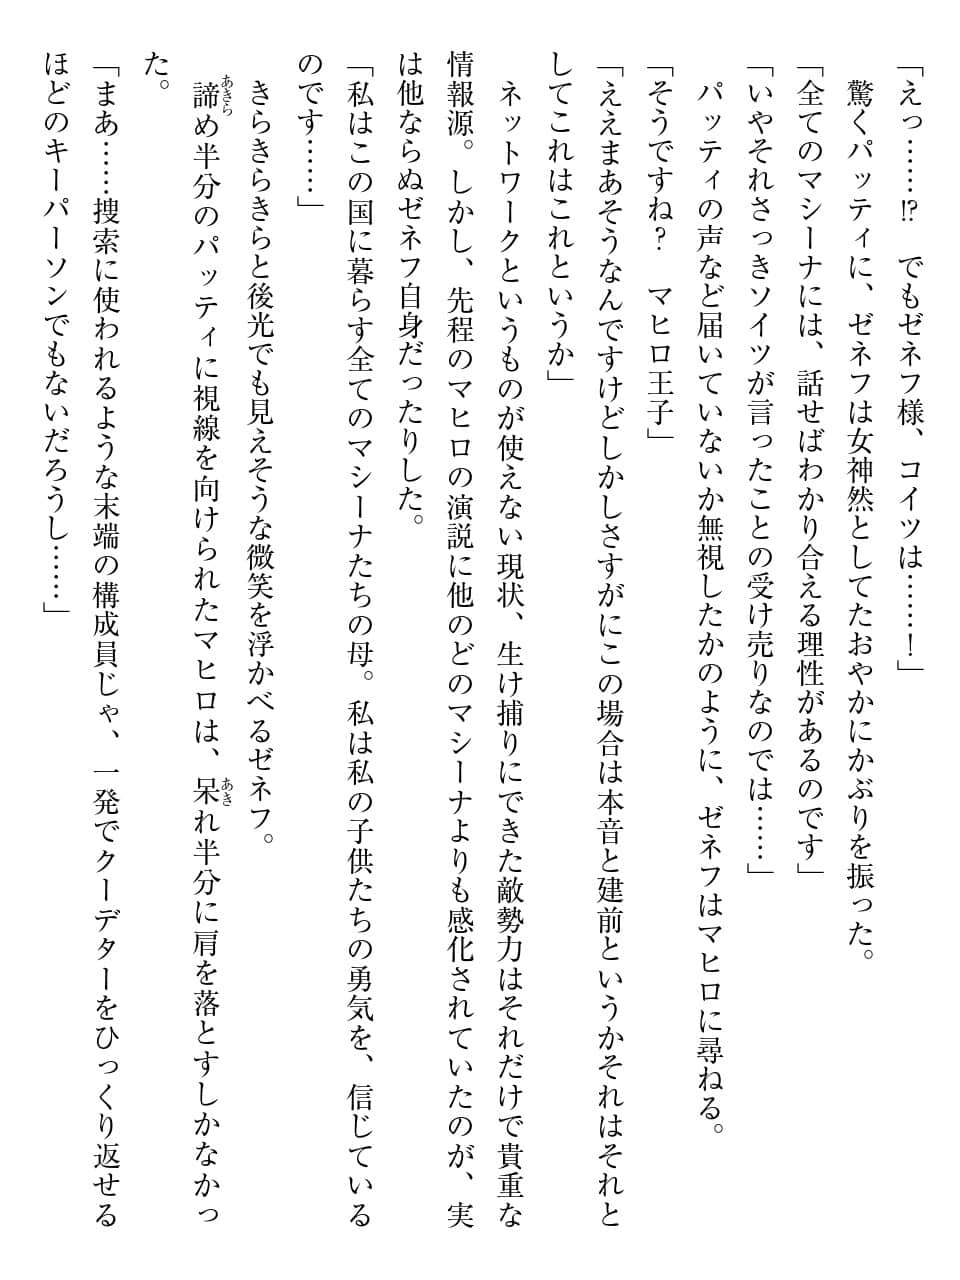 「えっ……!?　でもゼネフ様、コイツは……！」
　驚くパッティに、ゼネフは女神然としてたおやかにかぶりを振った。
「全てのマシーナには、話せばわかり合える理性があるのです」
「いやそれさっきソイツが言ったことの受け売りなのでは……」
　パッティの声など届いていないか無視したかのように、ゼネフはマヒロに尋ねる。
「そうですね？　マヒロ王子」
「ええまあそうなんですけどしかしさすがにこの場合は本音と建前というかそれはそれと
してこれはこれというか」
　ネットワークというものが使えない現状、生け捕りにできた敵勢力はそれだけで貴重な
情報源。しかし、先程のマヒロの演説に他のどのマシーナよりも感化されていたのが、実
は他ならぬゼネフ自身だったりした。
「私はこの国に暮らす全てのマシーナたちの母。私は私の子供たちの勇気を、信じている
のです……」
　きらきらきらと後光でも見えそうな微笑を浮かべるゼネフ。
　諦あきらめ半分のパッティに視線を向けられたマヒロは、呆あきれ半分に肩を落とすしかなかっ
た。
「まあ……捜索に使われるような末端の構成員じゃ、一発でクーデターをひっくり返せる
ほどのキーパーソンでもないだろうし……」